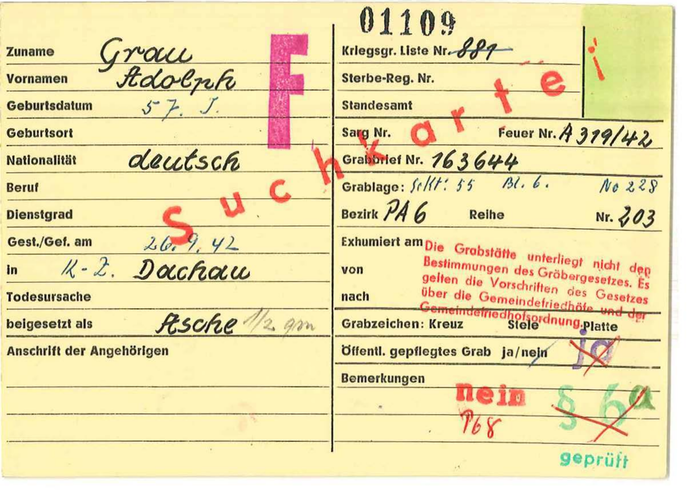 01109
F
Suchkartei
Zuname Grau
Vornamen Adolph
Geburtsdatum 57. J.
Geburtsort
Nationalität deutsch
Beruf
Dienstgrad
Gest./Gef. am 26.9.42
in K-Z. Dachau
Todesursache
beigesetzt als Asche 1/2 qm
Anschrift der Angehörigen
Kriegsgr. Liste Nr. 881
Sterbe-Reg. Nr.
Standesamt
Sarg Nr. Feuer Nr. A 319/42
Grabbrief Nr. 163644
Grablage: Sekt: 55 Bl. 6. No 228
Bezirk PA6 Reihe Nr. 203
Exhumiert am
von
nach
Die Grabstätte unterliegt nicht den
Bestimmungen des Gräbergesetzes. Es
gelten die Vorschriften des Gesetzes
über die Gemeindefriedhöfe und der
Gemeindefriedhofsordnung.
Grabzeichen: Kreuz Stele Platte
Öffentl. gepflegtes Grab ja/nein ja
Bemerkungen
nein § 6a
P68
geprüft